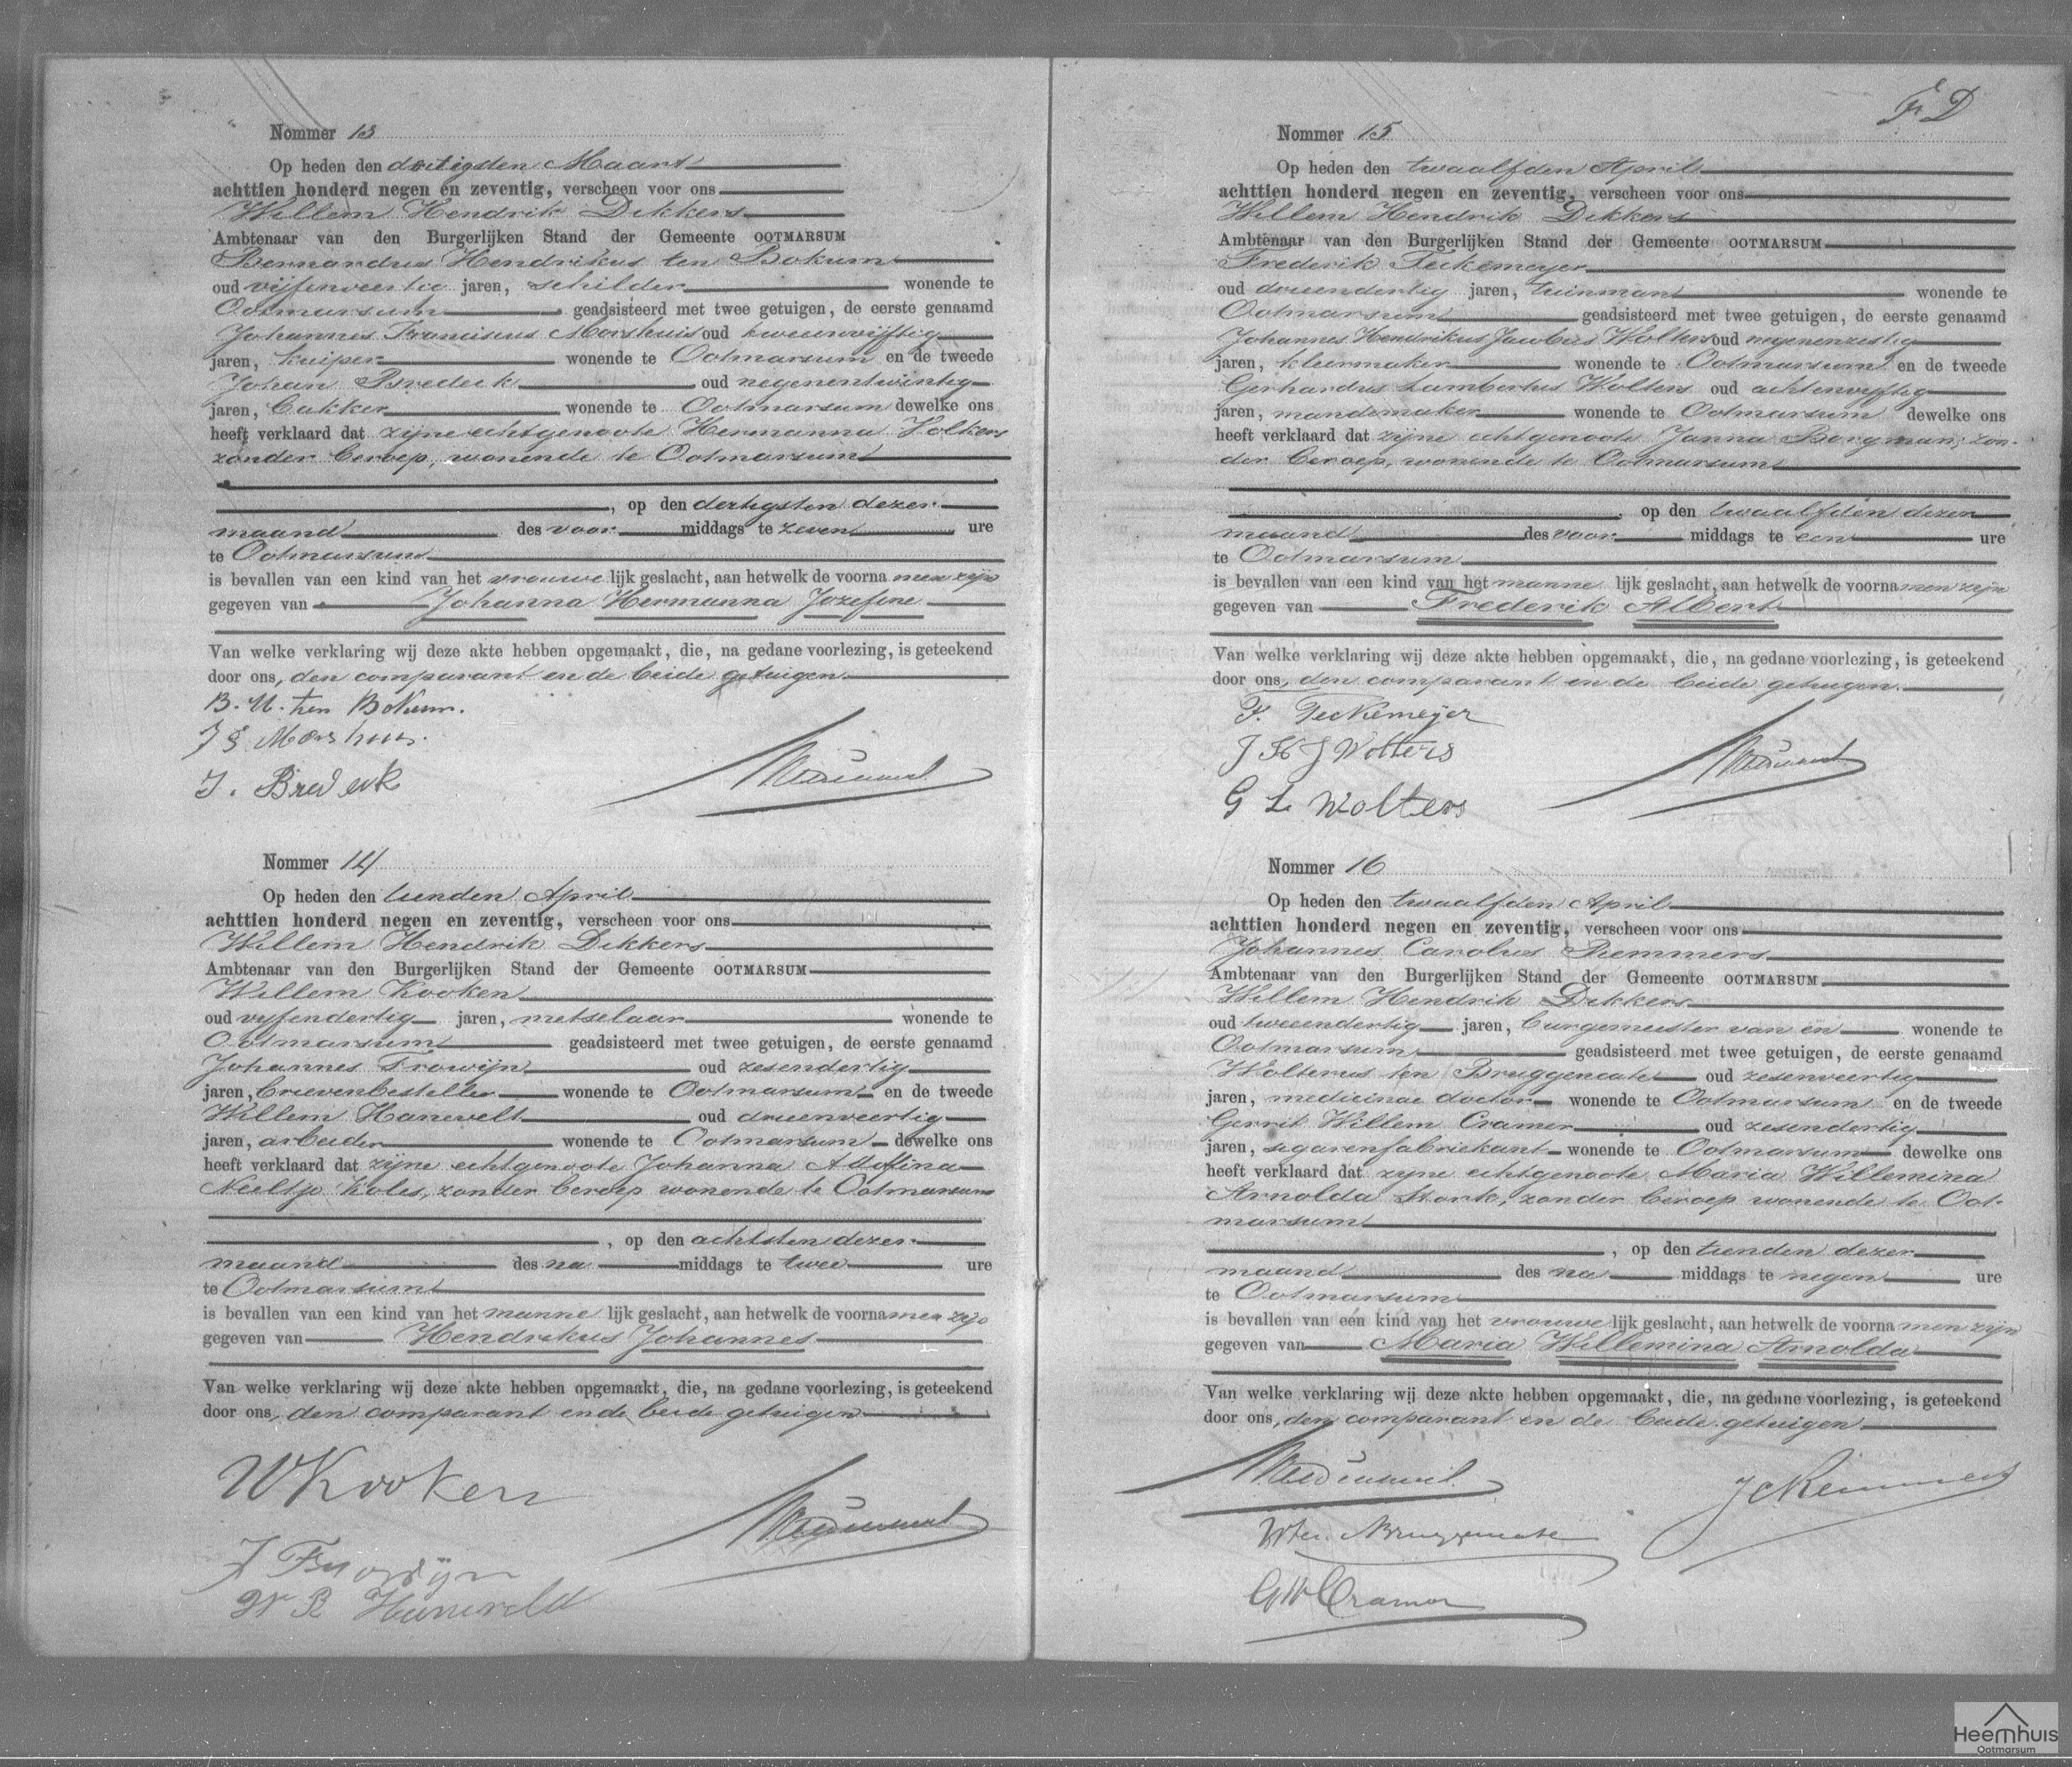 Nommer 13
Op heden den dertigsten Maart
achttien honderd negen en zeventig, verscheen voor ons
Willem Hendrik Dikkers
Ambtenaar van den Burgerlijken Stand der Gemeente OOTMARSUM
Bernardus Hendrikus ten Bokum
oud vijfenveertig jaren, schilder wonende te
Ootmarsum geadsisteerd met twee getuigen, de eerste genaamd
Johannes Franciscus Morshuis oud tweeenvijftig
jaren, kuiper wonende te Ootmarsum en de tweede
Johan Bredeck oud negenentwintig
jaren, bakker wonende te Ootmarsum dewelke ons
heeft verklaard dat zijne echtgenoote Hermanna Volkers
zonder beroep, wonende te Ootmarsum
, op den dertigsten dezer
maand des voor middags te zeven ure
te Ootmarsum
is bevallen van een kind van het vrouwe lijk geslacht, aan hetwelk de voorna men zijn
gegeven van Johanna Hermanna Jozefine
Van welke verklaring wij deze akte hebben opgemaakt, die, na gedane voorlezing, is geteekend
door ons, den comparant en de beide getuigen
B. H. ten Bokum.
J F Morshuis.
J. Bredeck
Nommer 14
Op heden den tienden April
achttien honderd negen en zeventig, verscheen voor ons
Willem Hendrik Dikkers
Ambtenaar van den Burgerlijken Stand der Gemeente OOTMARSUM
Willem Kooken
oud vyfendertig jaren, metselaar wonende te
Ootmarsum geadsisteerd met twee getuigen, de eerste genaamd
Johannes Frowijn oud zesendertig
jaren, brievenbesteller wonende te Ootmarsum en de tweede
Willem Hanevelt oud drieenveertig
jaren, arbeider wonende te Ootmarsum dewelke ons
heeft verklaard dat zijne echtgenoote Johanna Adolfina
Neeltje Koles, zonder beroep wonende te Ootmarsum
, op den achtsten dezer
maand des na middags te twee ure
te Ootmarsum
is bevallen van een kind van het manne lijk geslacht, aan hetwelk de voorna men zijn
gegeven van Hendrikus Johannes
Van welke verklaring wij deze akte hebben opgemaakt, die, na gedane voorlezing, is geteekend
door ons, den comparant en de beide getuigen
W Kooken
J Frowijn
W B Haneveld
F D
Nommer 15
Op heden den twaalfden April
achttien honderd negen en zeventig, verscheen voor ons
Willem Hendrik Dikkers
Ambtenaar van den Burgerlijken Stand der Gemeente OOTMARSUM
Frederik Teckemeyer
oud drieendertig jaren, tuinman wonende te
Ootmarsum geadsisteerd met twee getuigen, de eerste genaamd
Johannes Hendrikus Jacobus Wolters oud negenenzestig
jaren, kleermaker wonende te Ootmarsum en de tweede
Gerhardus Lambertus Wolters oud achtenvyftig
jaren, mandemaker wonende te Ootmarsum dewelke ons
heeft verklaard dat zijne echtgenoote Janna Borgman, zon-
der beroep, wonende te Ootmarsum
, op den twaalfden dezer
maand des voor middags te een ure
te Ootmarsum
is bevallen van een kind van het manne lijk geslacht, aan hetwelk de voorna men zijn
gegeven van Frederik Albert
Van welke verklaring wij deze akte hebben opgemaakt, die, na gedane voorlezing, is geteekend
door ons, den comparant en de beide getuigen.
F. Teckemeyer
J H J Wolters
G L Wolters
Nommer 16
Op heden den twaalfden April
achttien honderd negen en zeventig, verscheen voor ons
Johannes Carolus Remmers
Ambtenaar van den Burgerlijken Stand der Gemeente OOTMARSUM
Willem Hendrik Dikkers
oud tweeendertig jaren, burgemeester van en wonende te
Ootmarsum geadsisteerd met twee getuigen, de eerste genaamd
Wolterus ten Bruggencate oud zesenveertig
jaren, medicinae doctor wonende te Ootmarsum en de tweede
Gerrit Willem Cramer oud zesendertig
jaren, segarenfabriekant wonende te Ootmarsum dewelke ons
heeft verklaard dat zijne echtgenoote Maria Willemina
Arnolda Stork, zonder beroep wonende te Oot-
marsum
, op den tienden dezer
maand des na middags te negen ure
te Ootmarsum
is bevallen van een kind van het vrouwe lijk geslacht, aan hetwelk de voorna men zijn
gegeven van Maria Willemina Arnolda
Van welke verklaring wij deze akte hebben opgemaakt, die, na gedane voorlezing, is geteekend
door ons, den comparant en de beide getuigen
J C Remmers
W ten Bruggencate
G W Cramer
Heemhuis
Ootmarsum